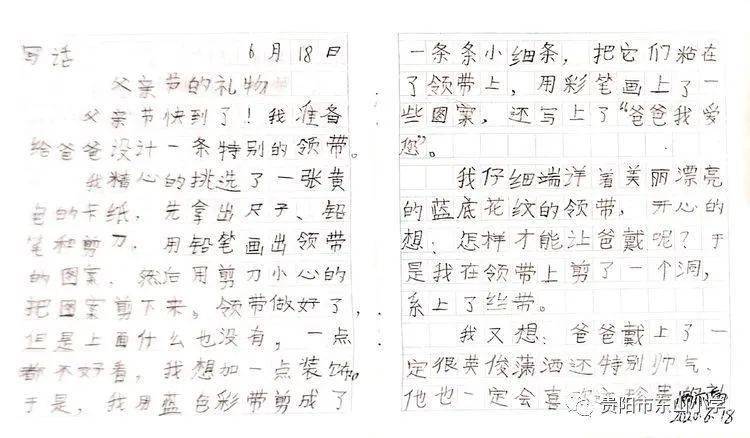 写话 6月18日
父亲节的礼物
父亲节快到了！我准备
给爸爸设计一条特别的领带。
我精心的挑选了一张黄
色的卡纸，先拿出尺子、铅
笔和剪刀，用铅笔画出领带
的图案，然后用剪刀小心的
把图案剪下来。领带做好了，
但是上面什么也没有，一点
都不好看，我想加一点装饰。
于是，我用蓝色彩带剪成了
一条条小细条，把它们粘在
了领带上，用彩笔画上了一
些图案，还写上了“爸爸我爱
您”。
我仔细端详着美丽漂亮
的蓝底花纹的领带，开心的
想：怎样才能让爸戴呢？于
是我在领带上剪了一个洞，
系上了丝带。
我又想：爸爸戴上了一
定很英俊潇洒还特别帅气，
他也一定会喜欢
贵阳市东山小学
2020.6.18